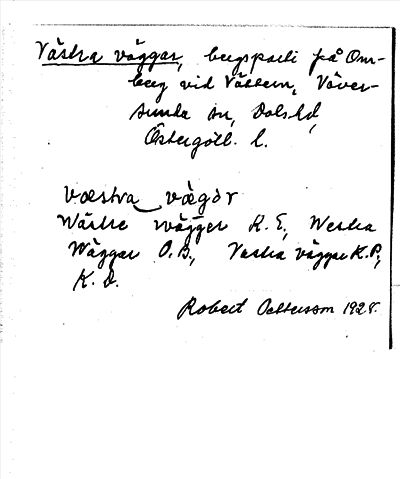 Västra väggar, bergsparti på Om-
berg vid Vättern, Väver-
sunda sn, Dals hd,
Östergötl. l.
væstra vægàr
Wästre wägger K. E., Westra
Wäggar O.B., Vestra väggar K.P.,
K. D.
Robert Pettersson 1928.